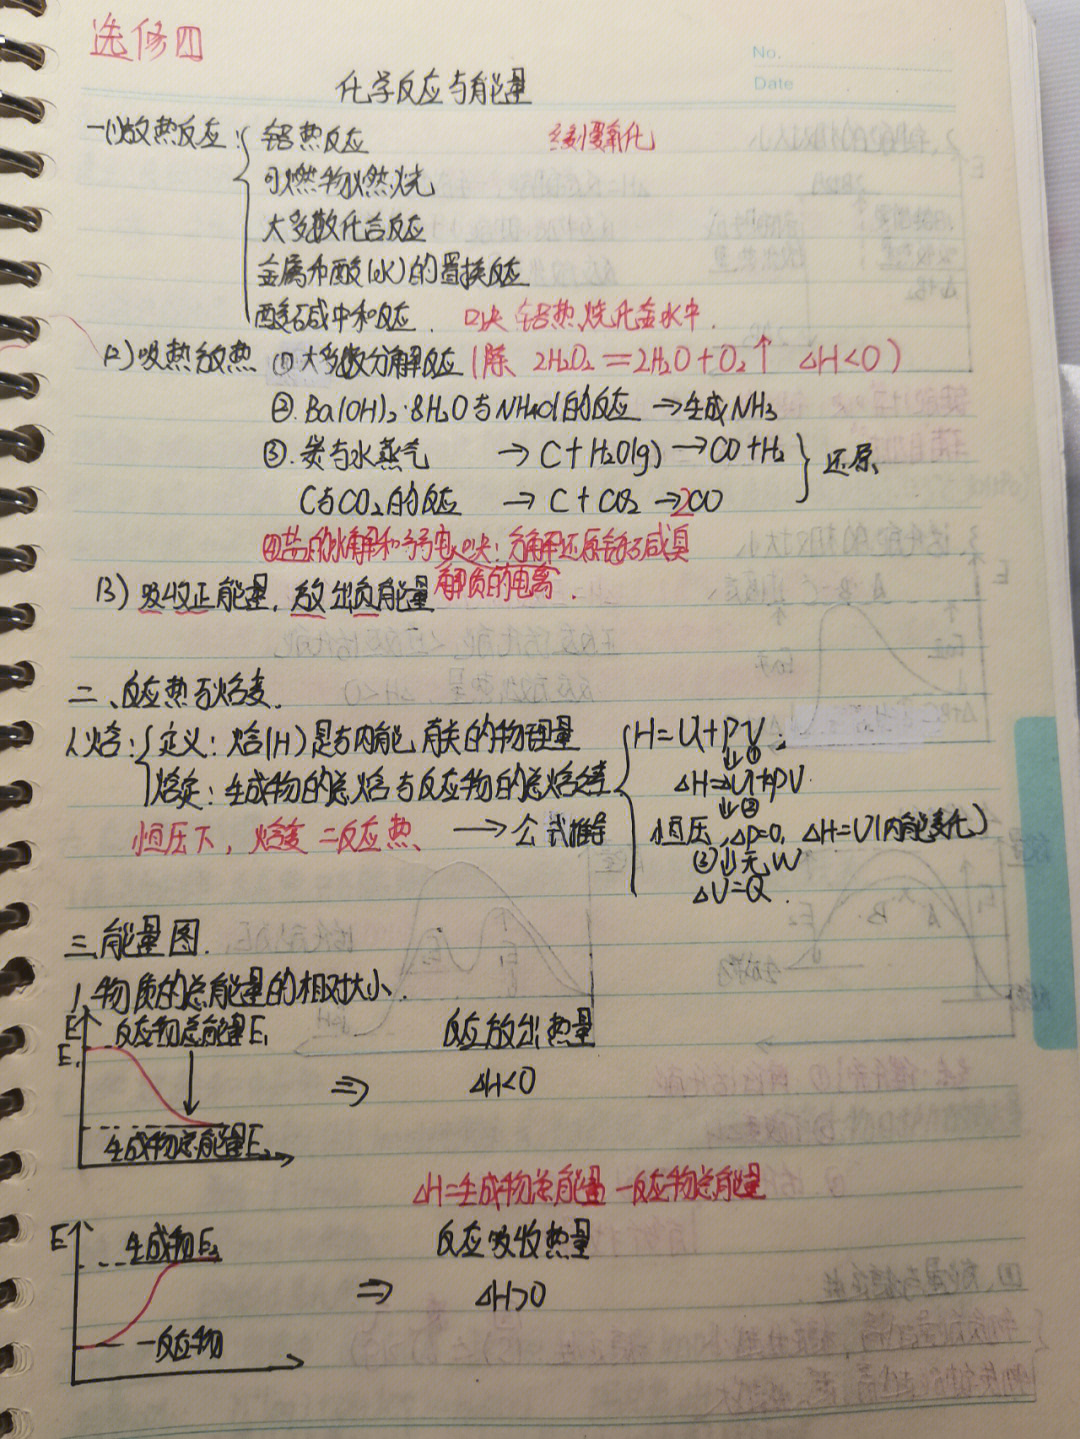 选修四
No.
Date
化学反应与能量
一、(1)放热反应：铝热反应 缓慢氧化
可燃物燃烧
大多数化合反应
金属和酸(水)的置换反应
酸碱中和反应. 口诀 铝热烧化金水中.
(2)吸热放热 ①大多数分解反应(除 2H₂O₂=2H₂O+O₂↑ △H<0)
②.Ba(OH)₂·8H₂O与NH₄Cl的反应 →生成NH₃
③.炭与水蒸气 → C+H₂O(g)→CO+H₂
C与CO₂的反应 → C+CO₂→2CO 还原
④盐的水解和弱电 口诀：分解还原铵碱臭
解质的电离.
(3)吸收正能量，放出负能量
二、反应热与焓变.
1.焓：定义：焓(H)是与内能有关的物理量
焓变：生成物的总焓与反应物的总焓之差
恒压下，焓变=反应热 → 公式推导
H=U+PV;
↓①
△H=U+PV.
↓②
恒压，△p=0，△H=U(内能变化)
③↓无W
△U=Q.
三.能量图.
1.物质的总能量的相对大小.
E 反应物总能量E₁ 反应放出热量
E₁ ⇒ △H<0
生成物总能量E₂
△H=生成物总能量-反应物总能量
E 生成物E₂ 反应吸收热量
⇒ △H>0
反应物